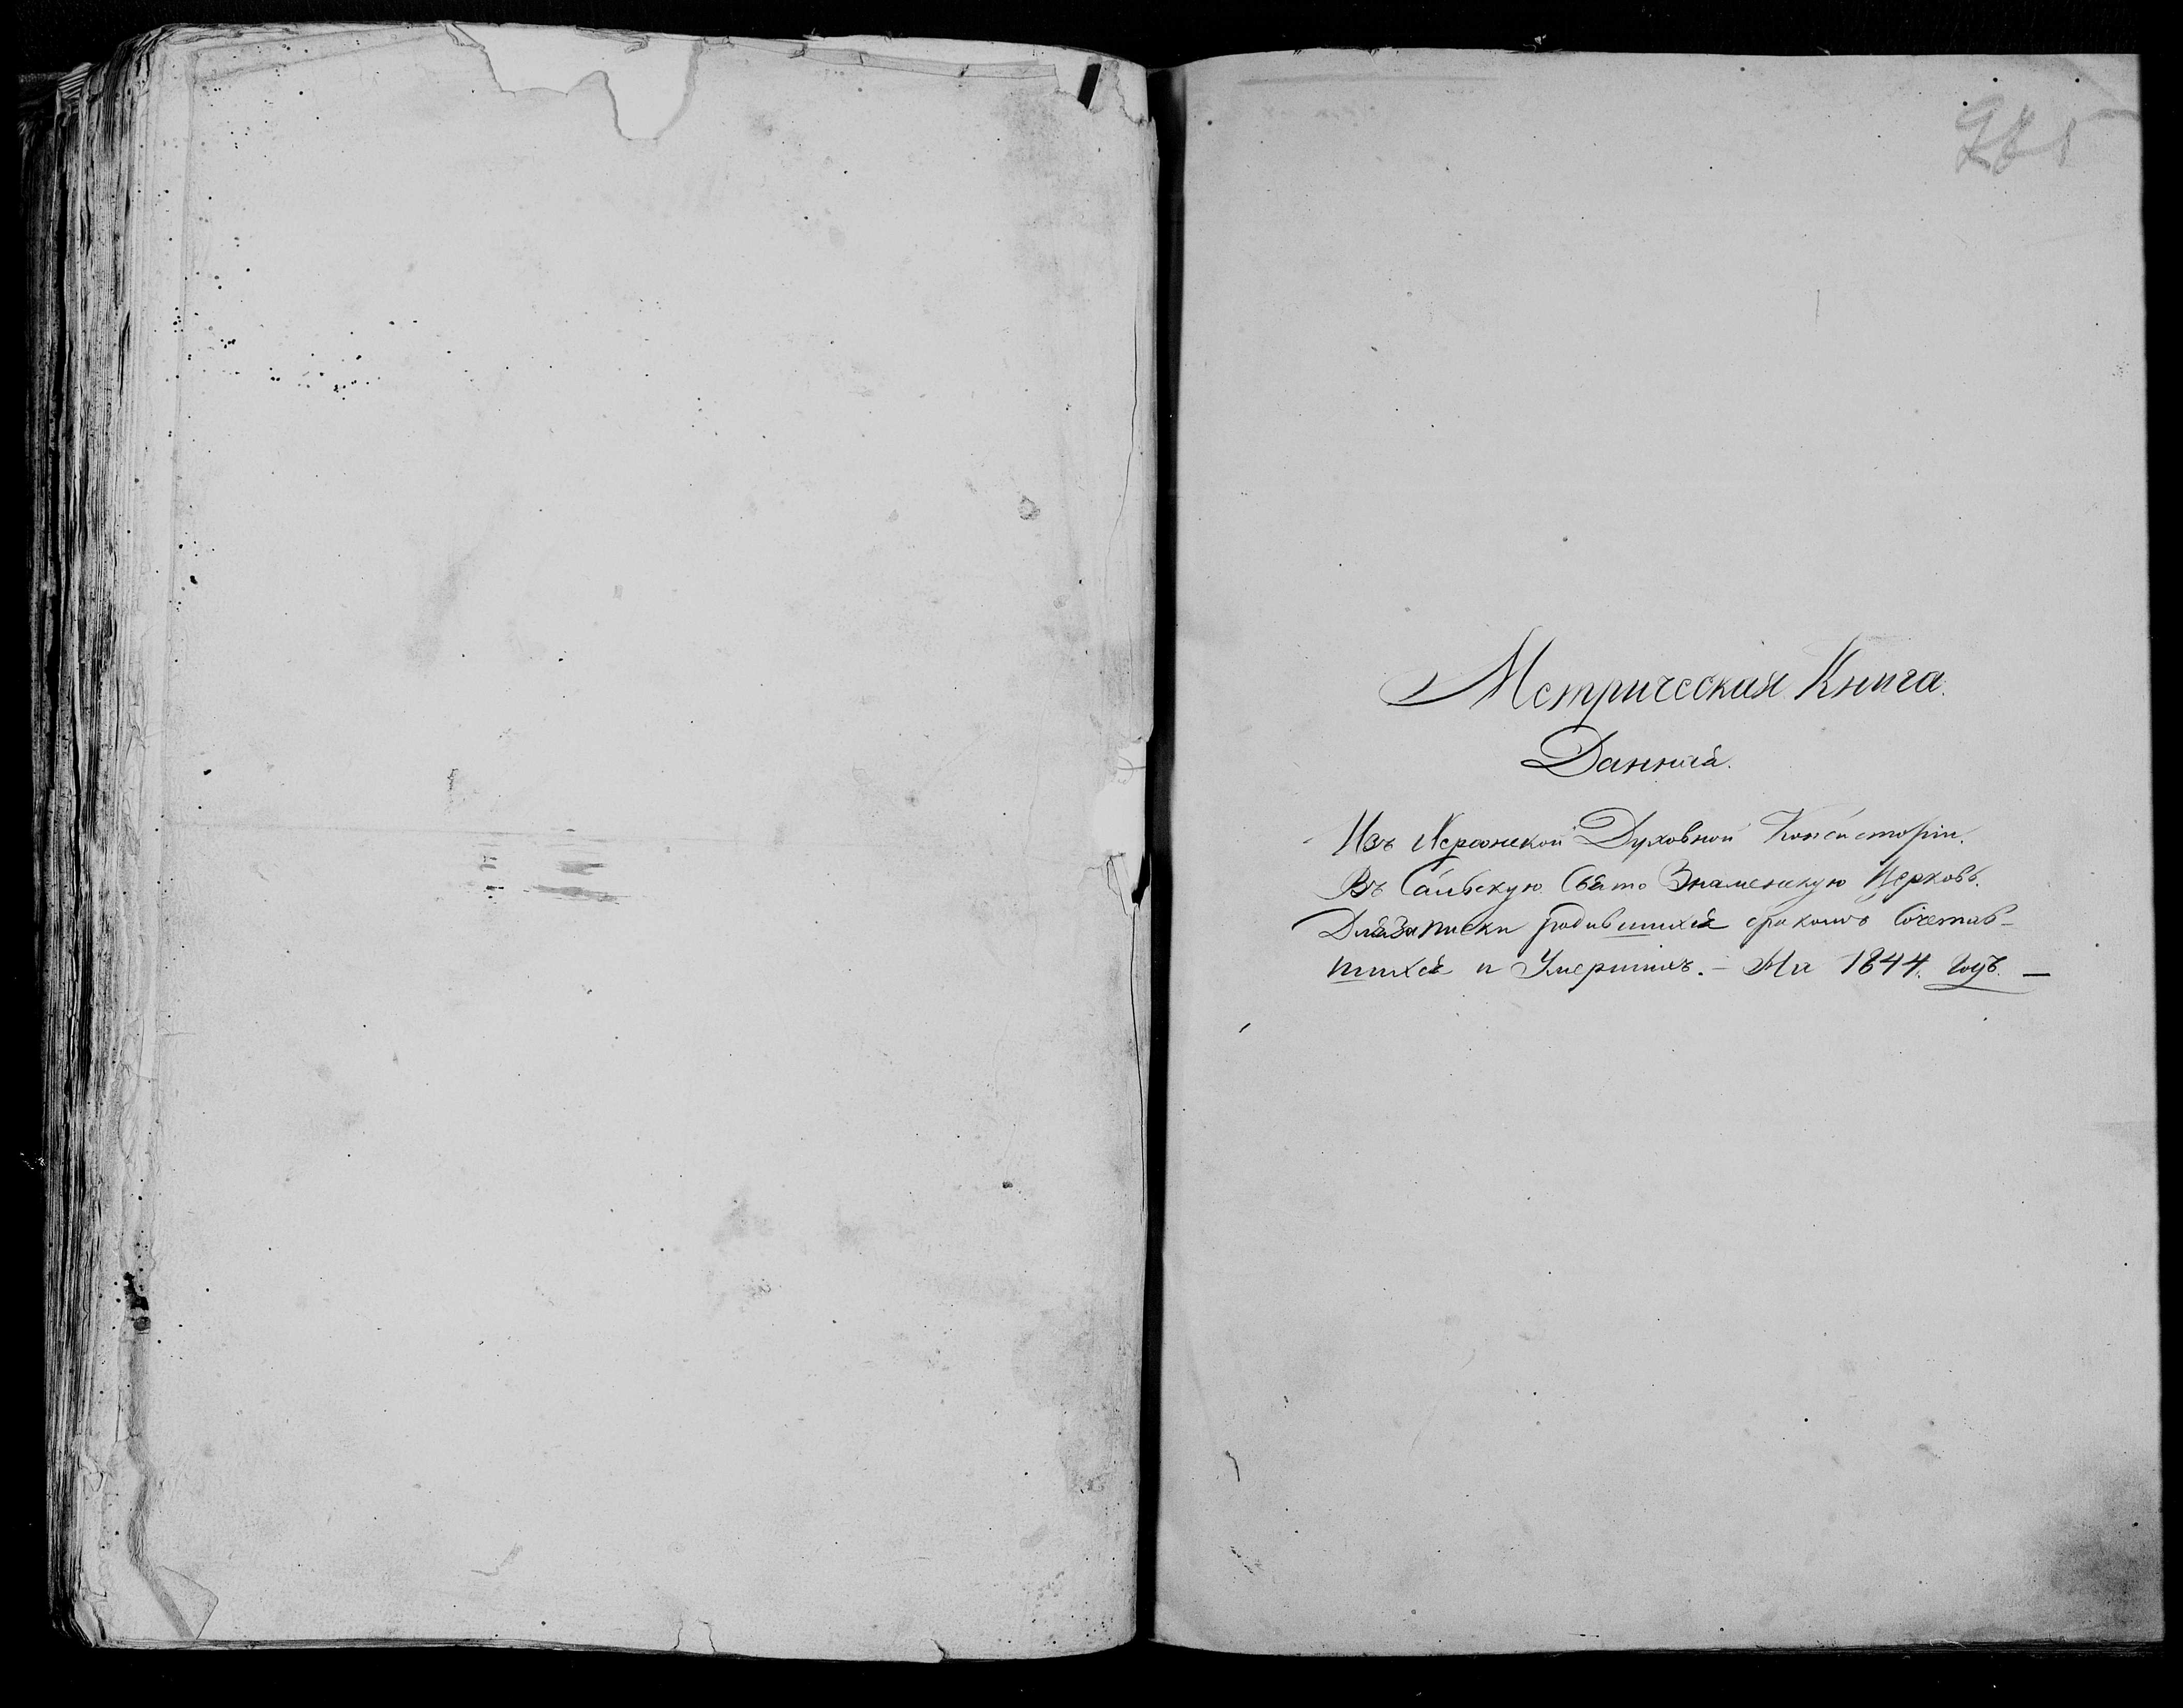 Метрическая Книга.
Данная.
Изъ Херсонской Духовной Консисторіи.
Въ Свято Знаменскую Церковь.
Для записки родившихся бракомъ Сочетав-
шихся и Умершихъ. – На 1844. годъ. —